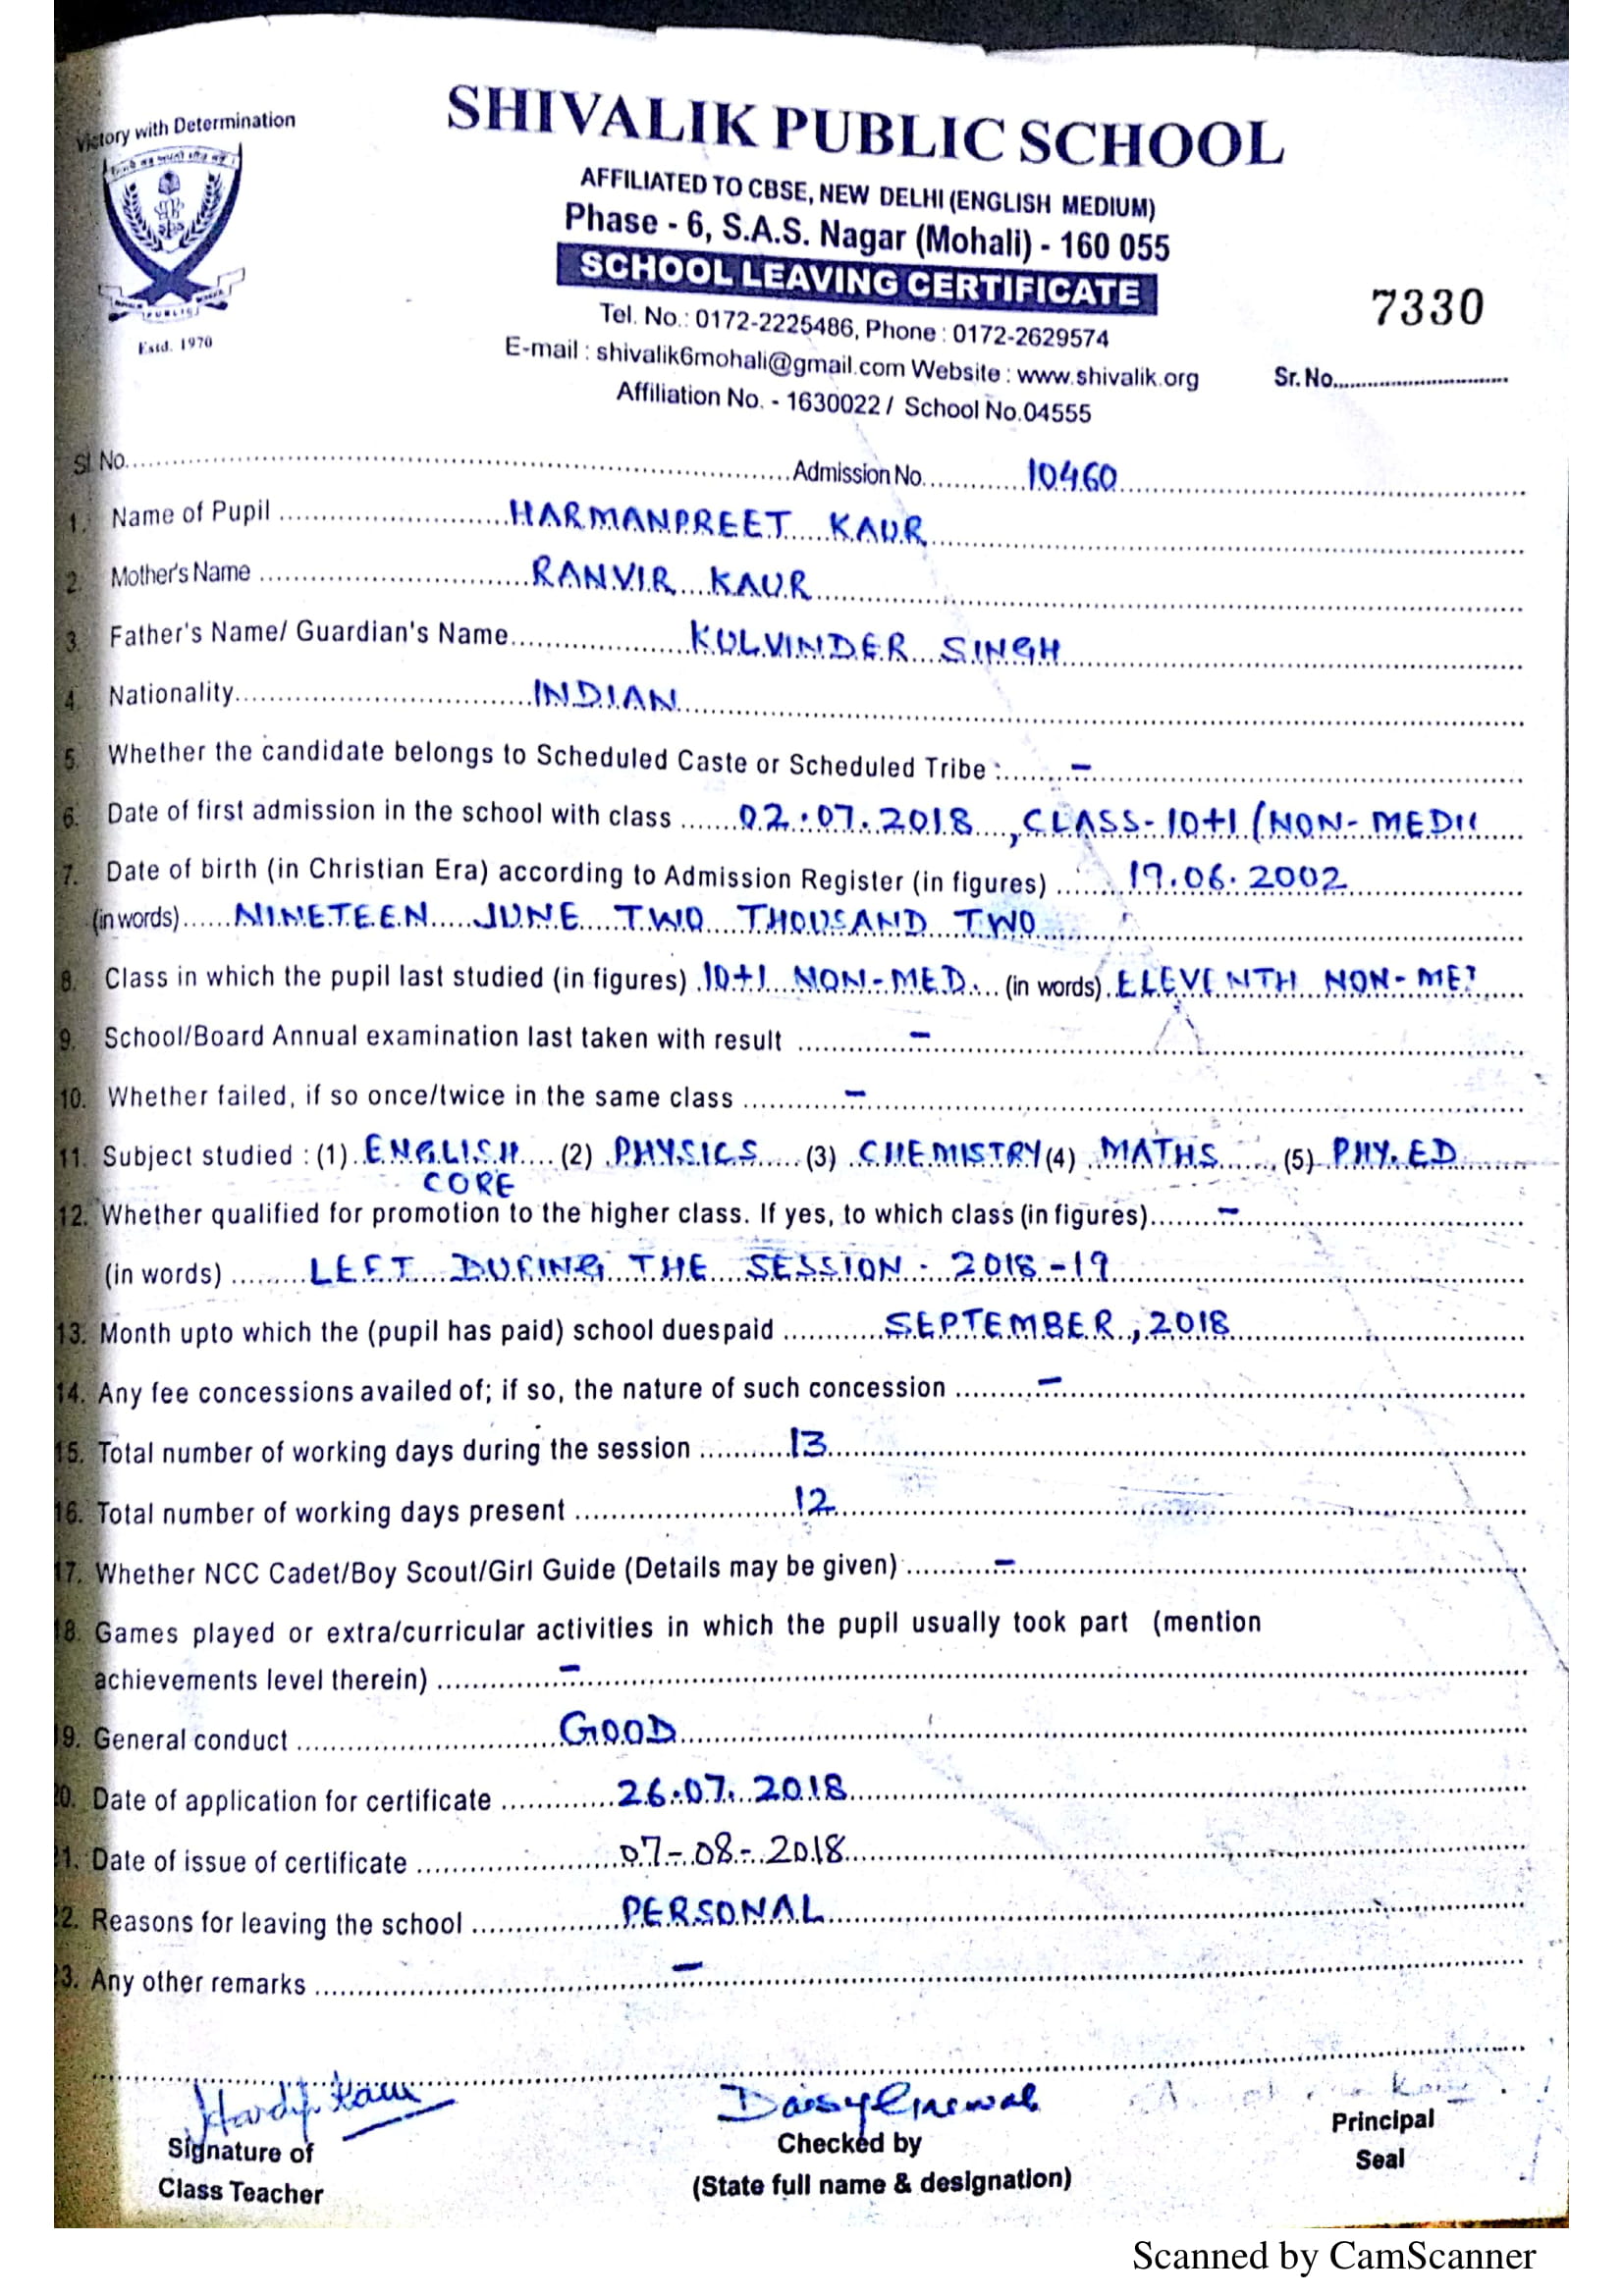 Victory with Determination
SHIVALIK PUBLIC SCHOOL
AFFILIATED TO CBSE, NEW DELHI (ENGLISH MEDIUM)
Phase - 6, S.A.S. Nagar (Mohali) - 160 055
SCHOOL LEAVING CERTIFICATE
7330
Tel. No.: 0172-2225486, Phone : 0172-2629574
Estd. 1970
E-mail : shivalik6mohali@gmail.com Website : www.shivalik.org
Sr. No.
Affiliation No. - 1630022 / School No.04555
Sl No. Admission No. 10460
1. Name of Pupil HARMANPREET KAUR
2. Mother's Name RANVIR KAUR
3. Father's Name/ Guardian's Name KULVINDER SINGH
4. Nationality INDIAN
5. Whether the candidate belongs to Scheduled Caste or Scheduled Tribe : -
6. Date of first admission in the school with class 02.07.2018, CLASS-10+1 (NON-
7. Date of birth (in Christian Era) according to Admission Register (in figures) 19.06.2002
(in words) NINETEEN JUNE TWO THOUSAND TWO
8. Class in which the pupil last studied (in figures) 10+1 NON-MED. (in words) ELEVENTH NON-
9. School/Board Annual examination last taken with result -
10. Whether failed, if so once/twice in the same class -
11. Subject studied : (1) ENGLISH (2) PHYSICS (3) CHEMISTRY (4) MATHS (5) PHY.ED
CORE
12. Whether qualified for promotion to the higher class. If yes, to which class (in figures) -
(in words) LEFT DURING THE SESSION. 2018-19
13. Month upto which the (pupil has paid) school duespaid SEPTEMBER, 2018
14. Any fee concessions availed of; if so, the nature of such concession -
15. Total number of working days during the session 13
16. Total number of working days present 12
17. Whether NCC Cadet/Boy Scout/Girl Guide (Details may be given) -
18. Games played or extra/curricular activities in which the pupil usually took part (mention
achievements level therein) -
19. General conduct GOOD
20. Date of application for certificate 26.07.2018
21. Date of issue of certificate 07-08-2018
22. Reasons for leaving the school PERSONAL
23. Any other remarks -
Kaur Daisy Grewal
Signature of Checked by Principal
Class Teacher (State full name & designation) Seal
Scanned by CamScanner